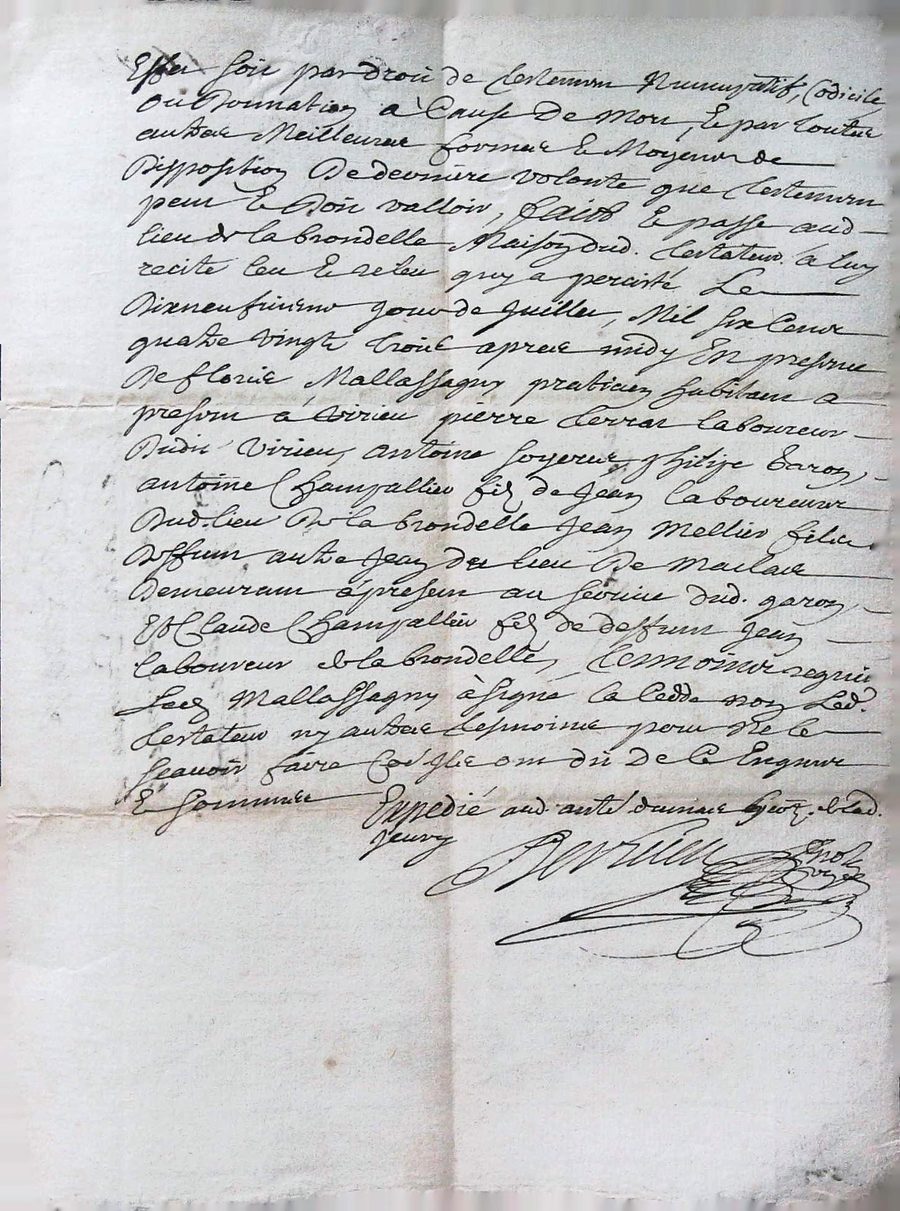 Effet soit par droit de testemen Nuncupatif, Codicile
Ou Donnation à Cause De Mort, Et par toutes
autres Meilleures formes Et Moyens de
Disposition De derniere volonté que testemen
peut Et Doit valloir, faict Et passé aud
lieu de la brondelle Maison dud. testateur à luy
recité leu Et releu quy a percisté Le
Dixneufiesme jour de Juillet, Mil six Cens
quatre vingts trois apres midy En presence
De florie Mallassagny praticien habitant a
present à Virieu pierre terrat laboureur
Dudit Virieu, antoine philipe garon,
antoine Champallier fils de Jean laboureurs
Dud. lieu De la brondelle Jean Mellier fils a
Deffunt autre Jean du lieu De maclas
Demeurant à present au service dud. garon,
Et Claude Champallier fils de deffunt Jean
laboureur de la brondelle, tesmoins requis
Led. Mallassagny à signé la Cedde non Led.
testateur ny autres tesmoins pour Ne le
sçavoir faire Cõe Ils ont dit De Ce Enquis
Et sommés
Expedié aud.